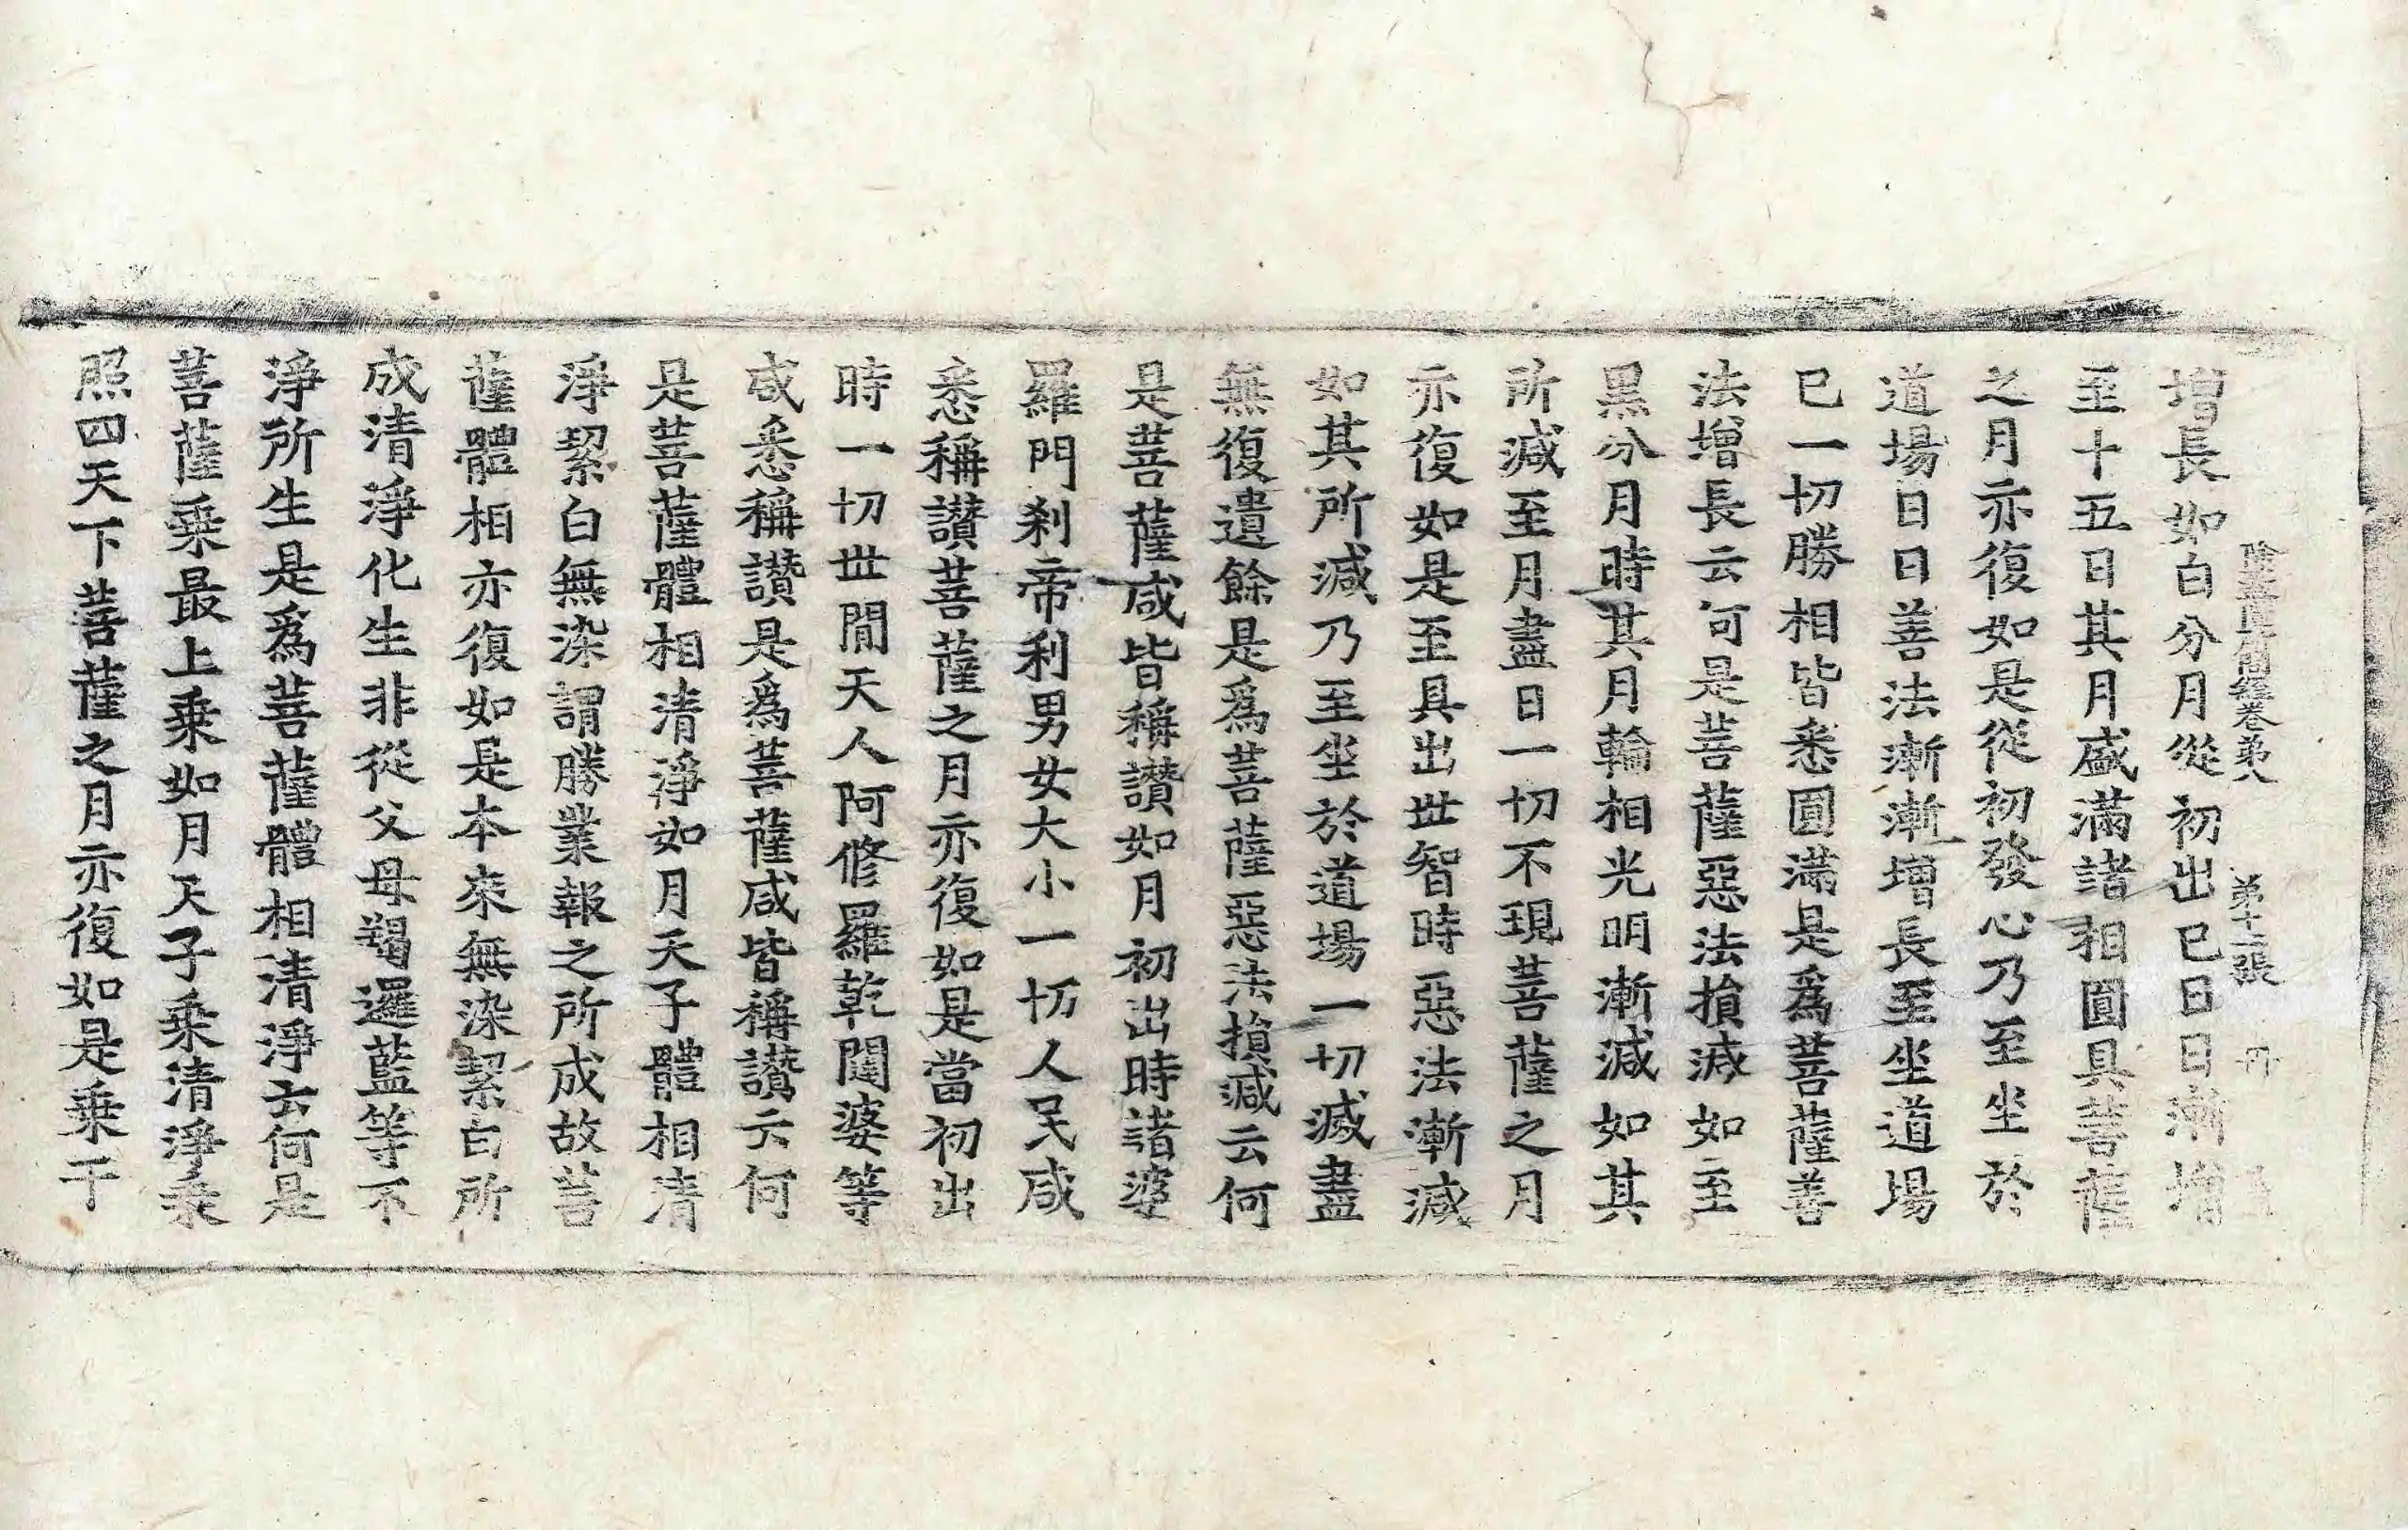 除蓋障菩薩所問經卷第八　第十二張　冊
增長如白分月從初出已日日漸增
至十五日其月盛滿諸相圓具菩薩
之月亦復如是從初發心乃至坐於
道場日日善法漸漸增長至坐道場
已一切勝相皆悉圓滿是爲菩薩善
法增長云何是菩薩惡法損減如至
黑分月時其月輪相光明漸減如其
所減至月盡日一切不現菩薩之月
亦復如是至具出世智時惡法漸減
如其所減乃至坐於道場一切滅盡
無復遺餘是爲菩薩惡法損減云何
是菩薩咸皆稱讚如月初出時諸婆
羅門刹帝利男女大小一切人民咸
悉稱讚菩薩之月亦復如是當初出
時一切世間天人阿修羅乾闥婆等
咸悉稱讚是爲菩薩咸皆稱讚云何
是菩薩體相清淨如月天子體相清
淨絜白無染謂勝業報之所成故菩
薩體相亦復如是本來無染絜白所
成清淨化生非從父母羯邏藍等不
淨所生是爲菩薩體相清淨云何是
菩薩乘最上乘如月天子乘清淨乘
照四天下菩薩之月亦復如是乘于